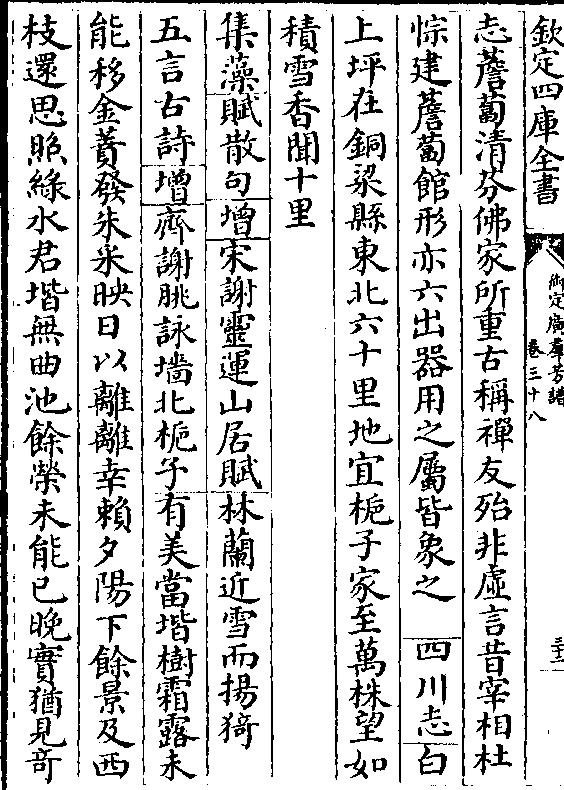 欽定四庫全書
御定廣羣芳譜
卷三十八
三十二
志薝蔔清芬佛家所重古稱禪友殆非虛言昔宰相杜
悰建薝蔔館形亦六出器用之屬皆象之 四川志 白
上坪在銅梁縣東北六十里地宜梔子家至萬株望如
積雪香聞十里
集藻賦散句增宋謝靈運山居賦林蘭近雪而揚猗
五言古詩增齊謝朓詠墻北梔子有美當堦樹霜露未
能移金蕡發朱采映日以離離幸賴夕陽下餘景及西
枝還思照綠水君堦無曲池餘榮未能已晚實猶見奇